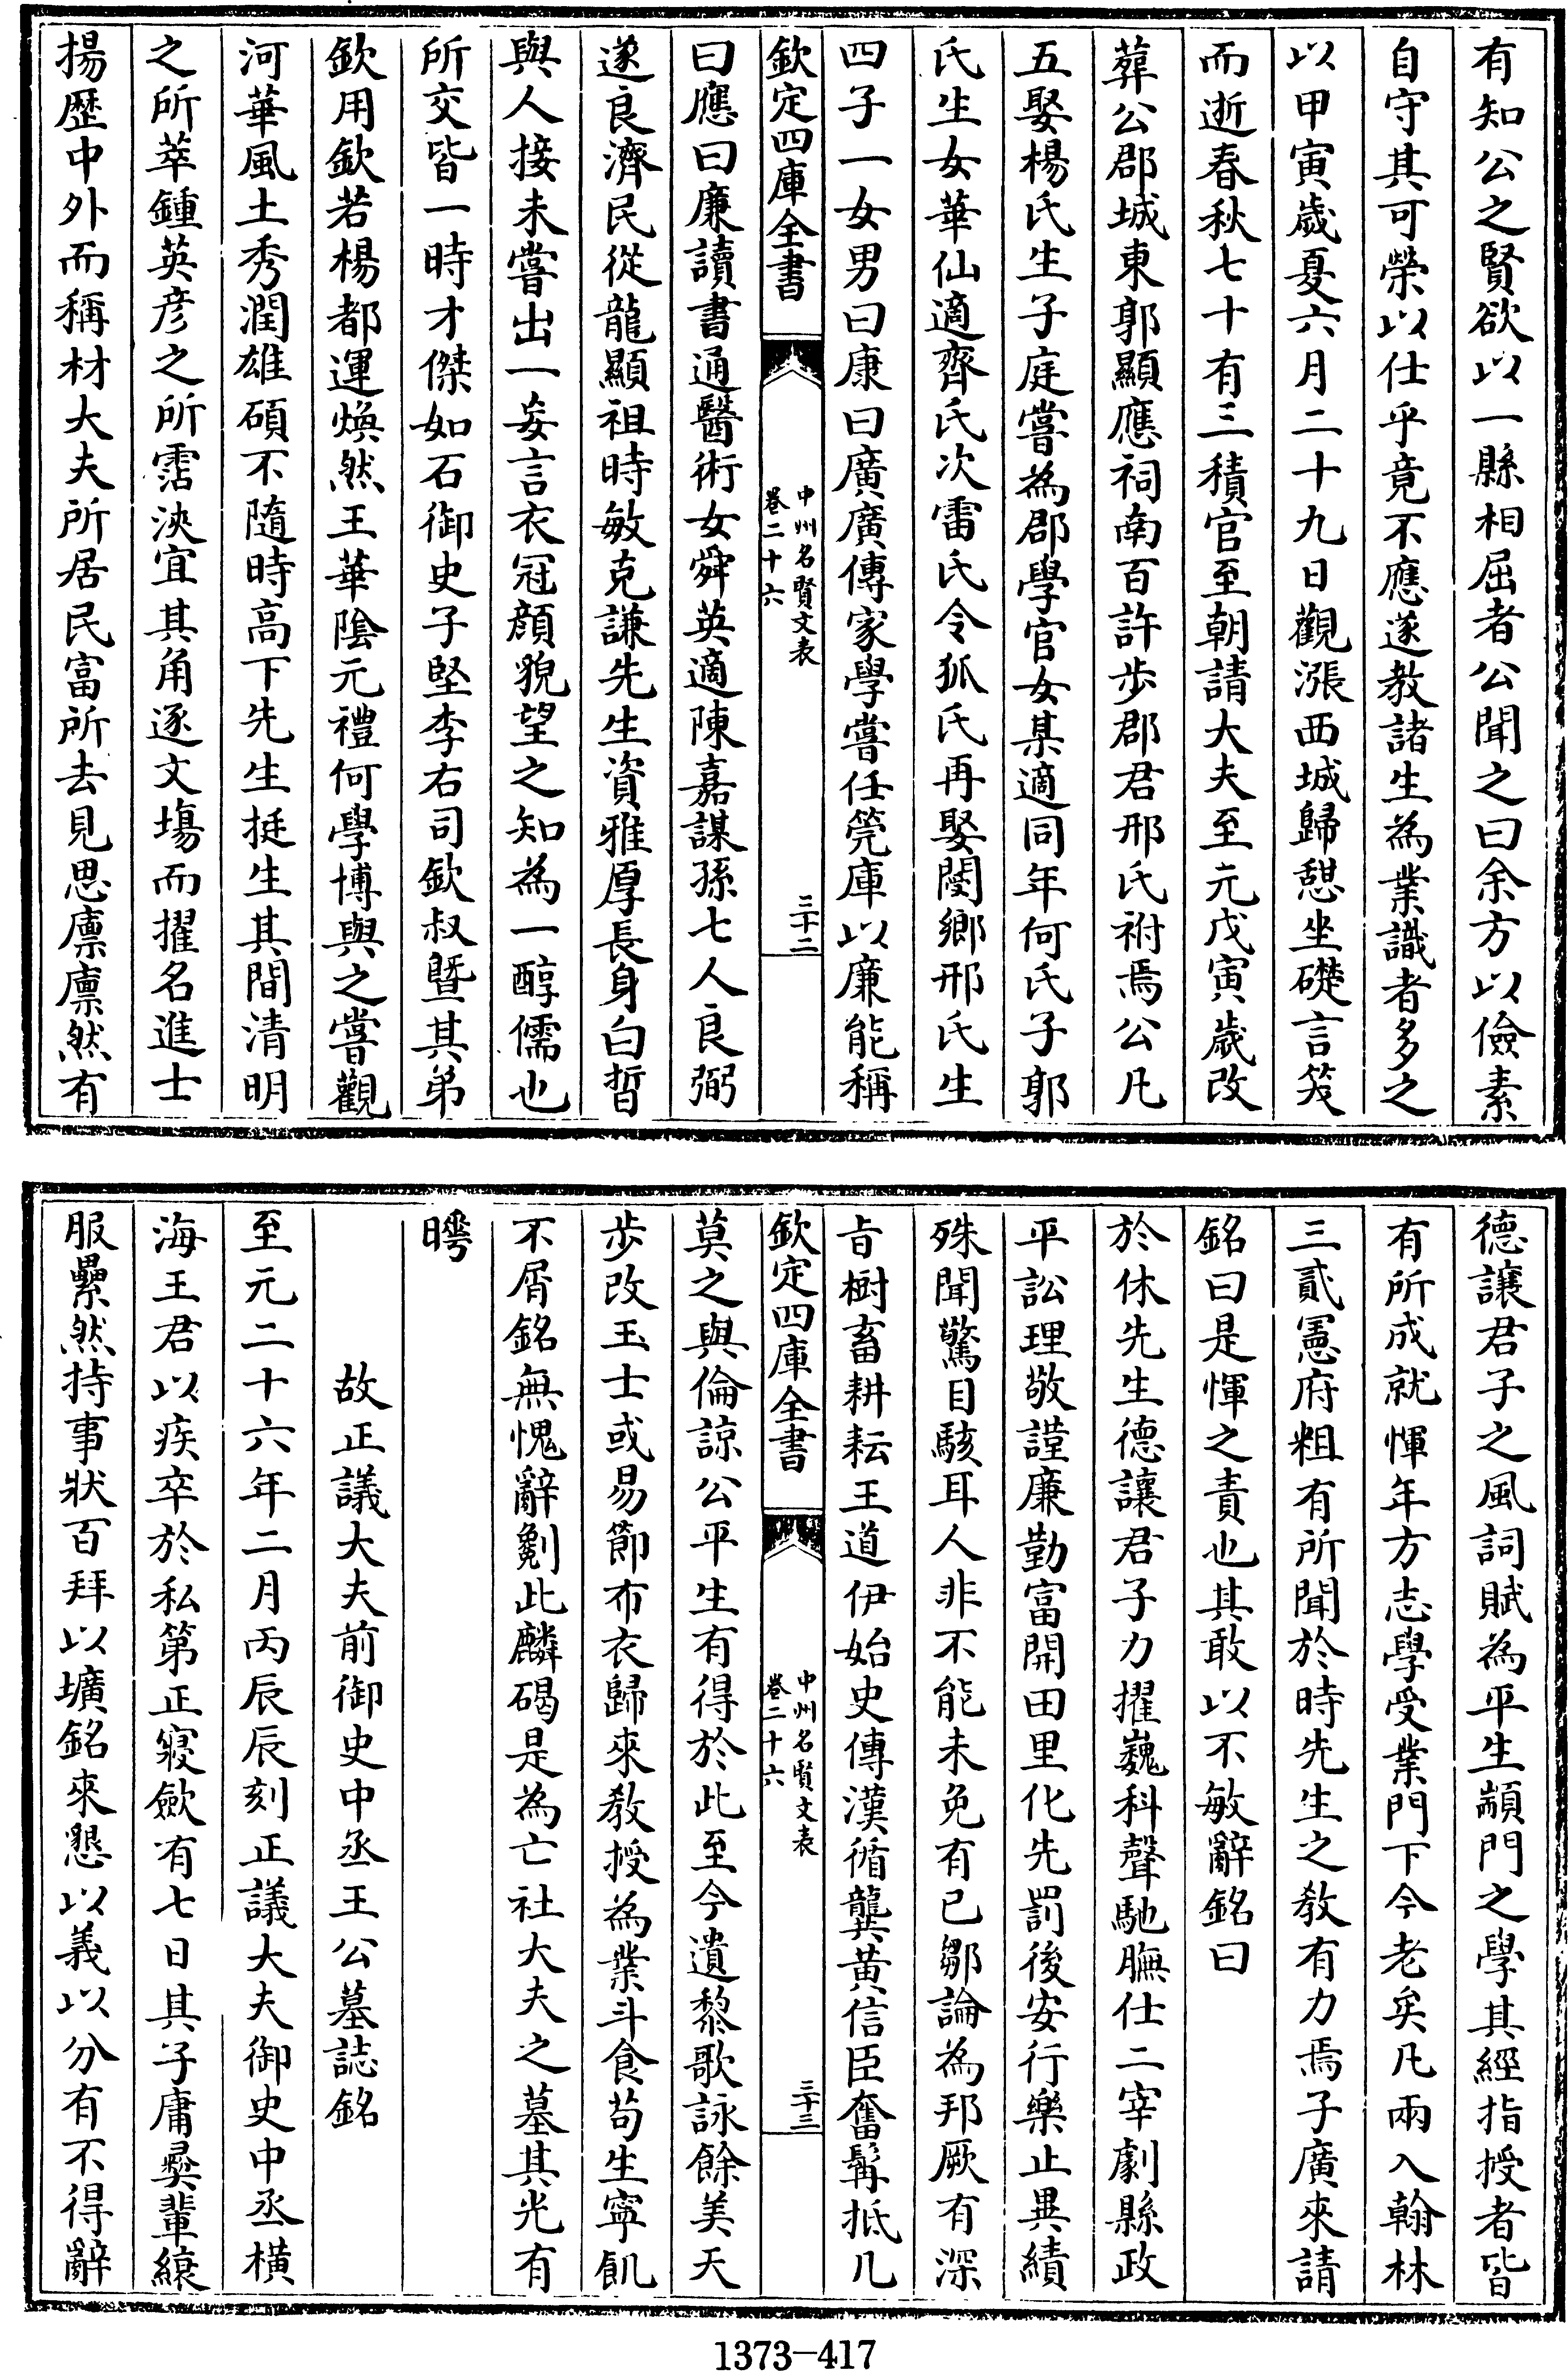 有知公之賢欲以一縣相屈者公聞之曰余方以儉素
自守其可榮以仕乎竟不應遂教諸生為業識者多之
以甲寅歲夏六月二十九日觀漲西城歸憇坐礎言笑
而逝春秋七十有三積官至朝請大夫至元戊寅歲改
葬公郡城東郭顯應祠南百許步郡君邢氏祔焉公凡
五娶楊氏生子庭嘗為郡學官女某適同年何氏子郭
氏生女華仙適齊氏次雷氏令狐氏再娶閿鄉邢氏生
四子一女男曰康曰廣廣傳家學嘗任筦庫以廉能稱
欽定四庫全書
中州名賢文表
卷二十六
三十二
曰應曰廉讀書通醫術女舜英適陳嘉謀孫七人良弼
遂良濟民從龍顯祖時敏克謙先生資雅厚長身白晳
與人接未嘗出一妄言衣冠顏貌望之知為一醇儒也
所交皆一時才傑如石御史子堅李右司欽叔暨其弟
欽用欽若楊都運煥然王華陰元禮何學博與之嘗觀
河華風土秀潤雄碩不隨時高下先生挺生其間清明
之所萃鍾英彥之所霑浹宜其角逐文塲而擢名進士
揚歷中外而稱材大夫所居民富所去見思凛凛然有
德讓君子之風詞賦為平生顓門之學其經指授者皆
有所成就惲年方志學受業門下今老矣凡兩入翰林
三貳憲府粗有所聞於時先生之教有力焉子廣來請
銘曰是惲之責也其敢以不敏辭銘曰
於休先生德讓君子力擢巍科聲馳膴仕二宰劇縣政
平訟理敬謹廉勤富開田里化先罰後安行樂止異績
殊聞驚目駭耳人非不能未免有已鄒論為邦厥有深
㫖樹畜耕耘王道伊始史傳漢循龔黃信臣奮髯抵几
莫之與倫諒公平生有得於此至今遺黎歌詠餘美天
步改玉士或易節布衣歸來教授為業斗食苟生寧飢
不屑銘無愧辭劖此麟碣是為亡社大夫之墓其光有
曄
故正議大夫前御史中丞王公墓誌銘
至元二十六年二月丙辰辰刻正議大夫御史中丞橫
海王君以疾卒於私第正寢歛有七日其子庸彛輩縗
服纍然持事狀百拜以壙銘來懇以義以分有不得辭
欽定四庫全書
中州名賢文表
卷二十六
三十三
1373-417